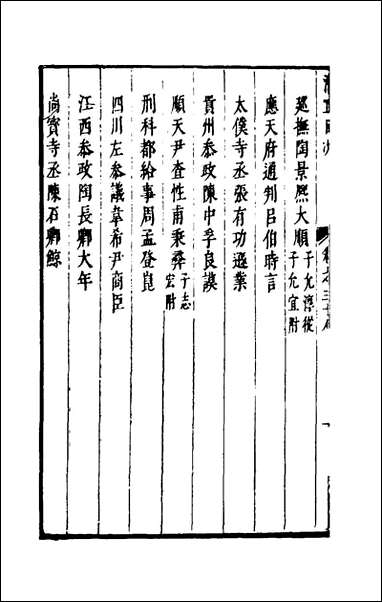 廵撫陶景熈大順子允淳從
子允宜附
應天府通判吕伯時言
太僕寺丞張有功遜業
貴州叅政陳中孚良謨
順天尹查性甫秉彝子志
宏附
刑科都給事周孟登崑
四川左叅議韋希尹商臣
江西叅政陶長卿大年
尚寳寺丞陳石卿鯨